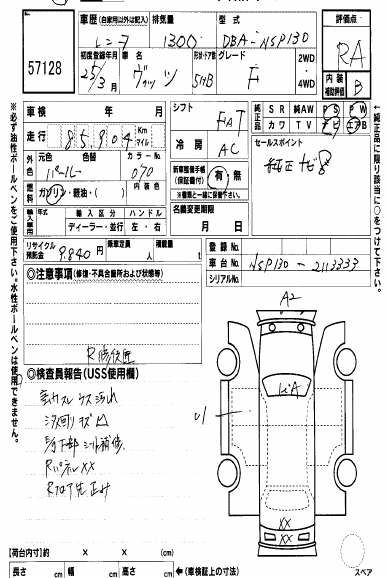 57128
車歴 (自家用以外は記入)
レンタ
排気量
1300
型式
DBA-NSP130
初度登録年月
25/3月
車名
ヴィッツ
形状・ドア数
5HB
グレード
F
2WD
4WD
評価点
RA
内装補助評価
B
車検
年 月
走行
85,904
Km
マイル
外色
元色
パール
色替
カラーNo.
070
燃料
ガソリン・軽油・( )
内装色
輸入車用
年式
輸入区分
ハンドル
ディーラー・並行
左・右
リサイクル預託金
9,840円
乗車定員
人
積載量
t
シフト
FAT
冷房
AC
新車整備手帳(保証書付)
有・無
※書類と一緒に保管下さい。
名義変更期限
月 日
純正品
SR
純AW
PS
PW
カワ
TV
ナビ
エアB
セールスポイント
純正ナビ
登録No.
車台No.
NSP130-2113333
シリアルNo.
←純正品に限り該当に○をつけて下さい。
※必ず油性ボールペンをご使用下さい。水性ボールペンは使用できません。
◎注意事項(修復・不具合箇所および状態等)
R修復歴
◎検査員報告(USS使用欄)
室内スレ ウス汚れ
RパネルXX
A2
XX
XX
【荷台内寸】
× × (cm)
長さ cm
幅 cm
高さ cm
←(車検証上の寸法)
スペア